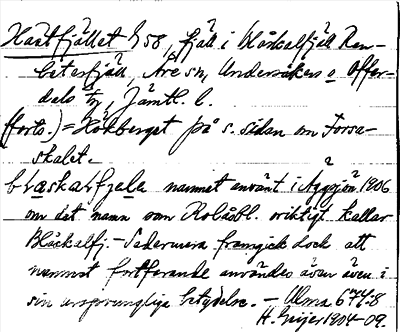 Hastfjället § 58, fjäll i Blåskalfjäll Ren-
betesfjäll, Åre sn, Undersåkers o Offer-
dals tg, Jämtl. l.
(forts.) = Hökberget på s. sidan om Forsa-
skalet.
blaskalfjela namnet använt i Äggsjön 1906
om det namn som Rolåsbl. oriktigt kallar
Blåskalfj. – Sedermera framgick dock att
namnet fortfarande användes även även i
sin ursprungliga betydelse. – Ulma 677:8
H. Geijer 1904–09.